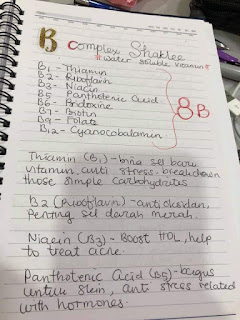 B complex Shaklee
water soluble vitamin
B1 - Thiamin
B2 - Riboflavin
B3 - Niacin
B5 Panthotenic Acid
B6 - Piridoxine
B7 - Biotin
B9 - Folate
B12 - Cyanocobalamin
8B
Thiamin (B1) - bina sel baru
vitamin anti stress. breakdown
those simple carbohydrates
B2 (Riboflavin) - antioksidan,
Penting sel darah merah.
Niacin (B3) - Boost HDL, help
to treat acne.
Panthotenic Acid (B5) - bagus
untuk skin, anti stress related
with hormones.